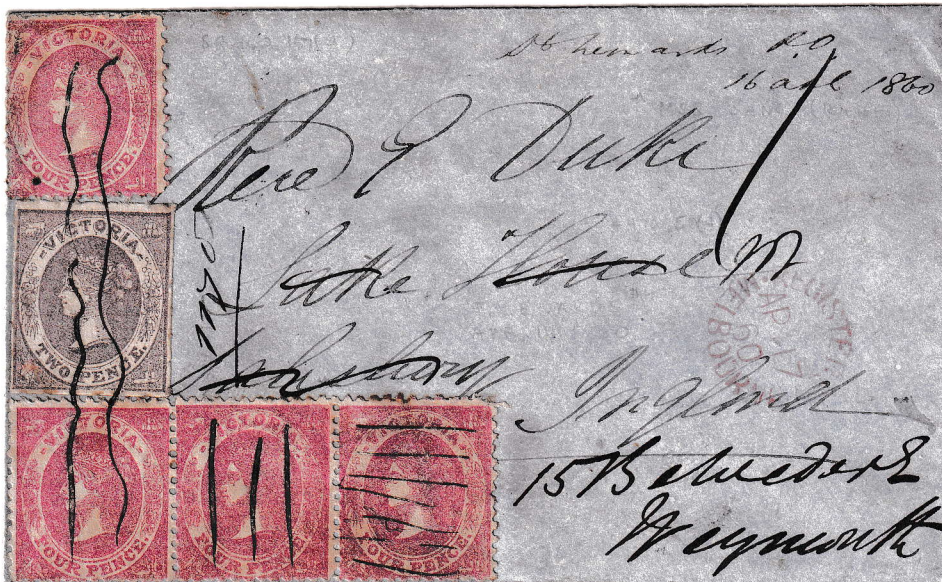 VICTORIA
FOUR PENCE.
VICTORIA
TWO PENCE.
VICTORIA
FOUR PENCE.
VICTORIA
FOUR PENCE.
VICTORIA
FOUR PENCE.
P.O
16 apl 1860
Revd E Duke
Lake House
Salisbury
England
15 Belvedere
Weymouth
REGISTERED
AP 17
60
MELBOURNE